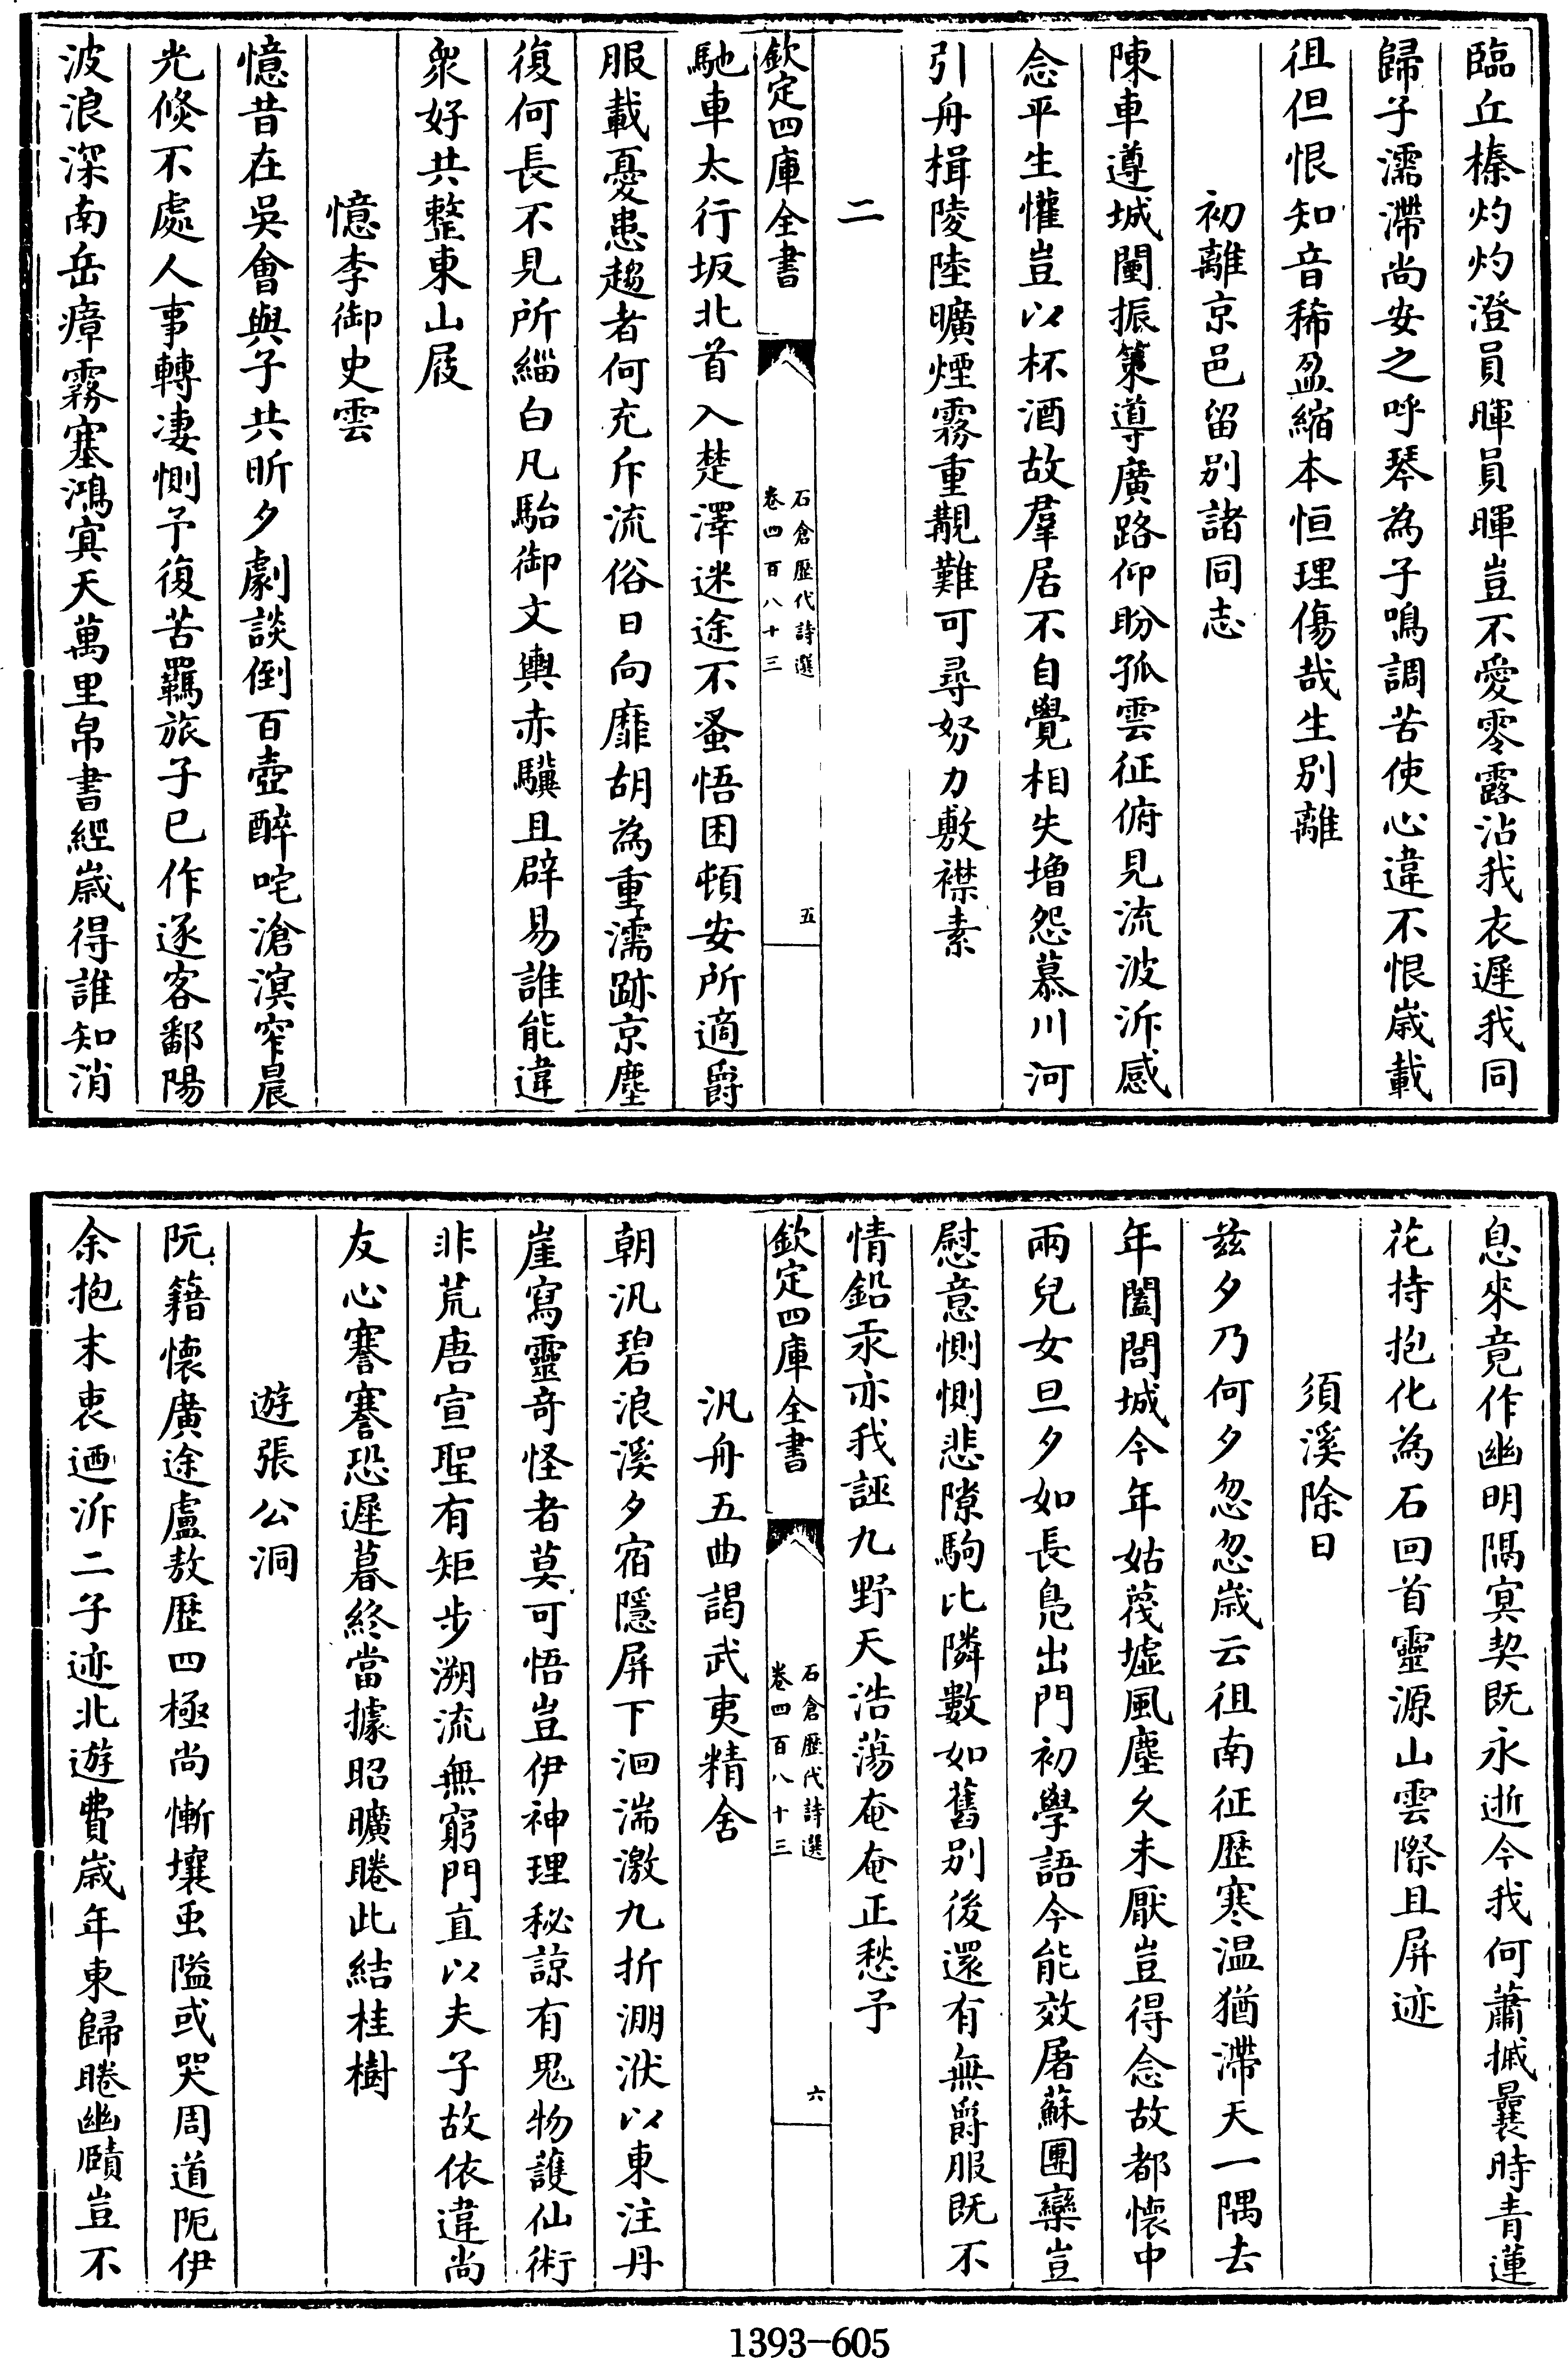 臨丘榛灼灼澄員暉員暉豈不愛零露沾我衣遲我同
歸子濡滯尚安之呼琴為子鳴調苦使心違不恨歳載
徂但恨知音稀盈縮本恒理傷哉生別離
初離京邑留別諸同志
陳車遵城闉振策導廣路仰盼孤雲征俯見流波泝感
念平生懽豈以杯酒故羣居不自覺相失増怨慕川河
引舟楫陵陸曠煙霧重覯難可尋努力敷襟素
二
欽定四庫全書
石倉歷代詩選
卷四百八十三
五
馳車太行坂北首入楚澤迷途不蚤悟困頓安所適爵
服載憂患趨者何充斥流俗日向靡胡為重濡跡京塵
復何長不見所緇白凡駘御文輿赤驥且辟易誰能違
衆好共整東山屐
憶李御史雲
憶昔在吳會與子共昕夕劇談倒百壺醉咤滄溟窄晨
光倐不處人事轉凄惻予復苦羈旅子已作逐客鄱陽
波浪深南岳瘴霧塞鴻寘天萬里帛書經歳得誰知消
息來竟作幽明隔冥契既永逝今我何蕭摵曩時青蓮
花持抱化為石回首靈源山雲際且屏迹
須溪除日
兹夕乃何夕忽忽歳云徂南征歴寒温猶滯天一隅去
年闔閭城今年姑蔑墟風塵久未厭豈得念故都懷中
兩兒女旦夕如長鳧出門初學語今能效屠蘇團欒豈
慰意惻惻悲隙駒比隣數如舊别後還有無爵服既不
情鉛汞亦我誣九野天浩蕩奄奄正愁予
欽定四庫全書
石倉歷代詩選
卷四百八十三
六
汎舟五曲謁武夷精舍
朝汎碧浪溪夕宿隱屏下洄湍激九折淜洑以東注丹
崖寫靈奇怪者莫可悟豈伊神理秘諒有鬼物護仙術
非荒唐宣聖有矩步溯流無窮門直以夫子故依違尚
友心謇謇恐遲暮終當據昭曠睠此結桂樹
遊張公洞
阮籍懷廣途盧敖歴四極尚慚壤䖝隘或哭周道阨伊
余抱末衷迺泝二子迹北遊費歳年東歸睠幽賾豈不
1393-605